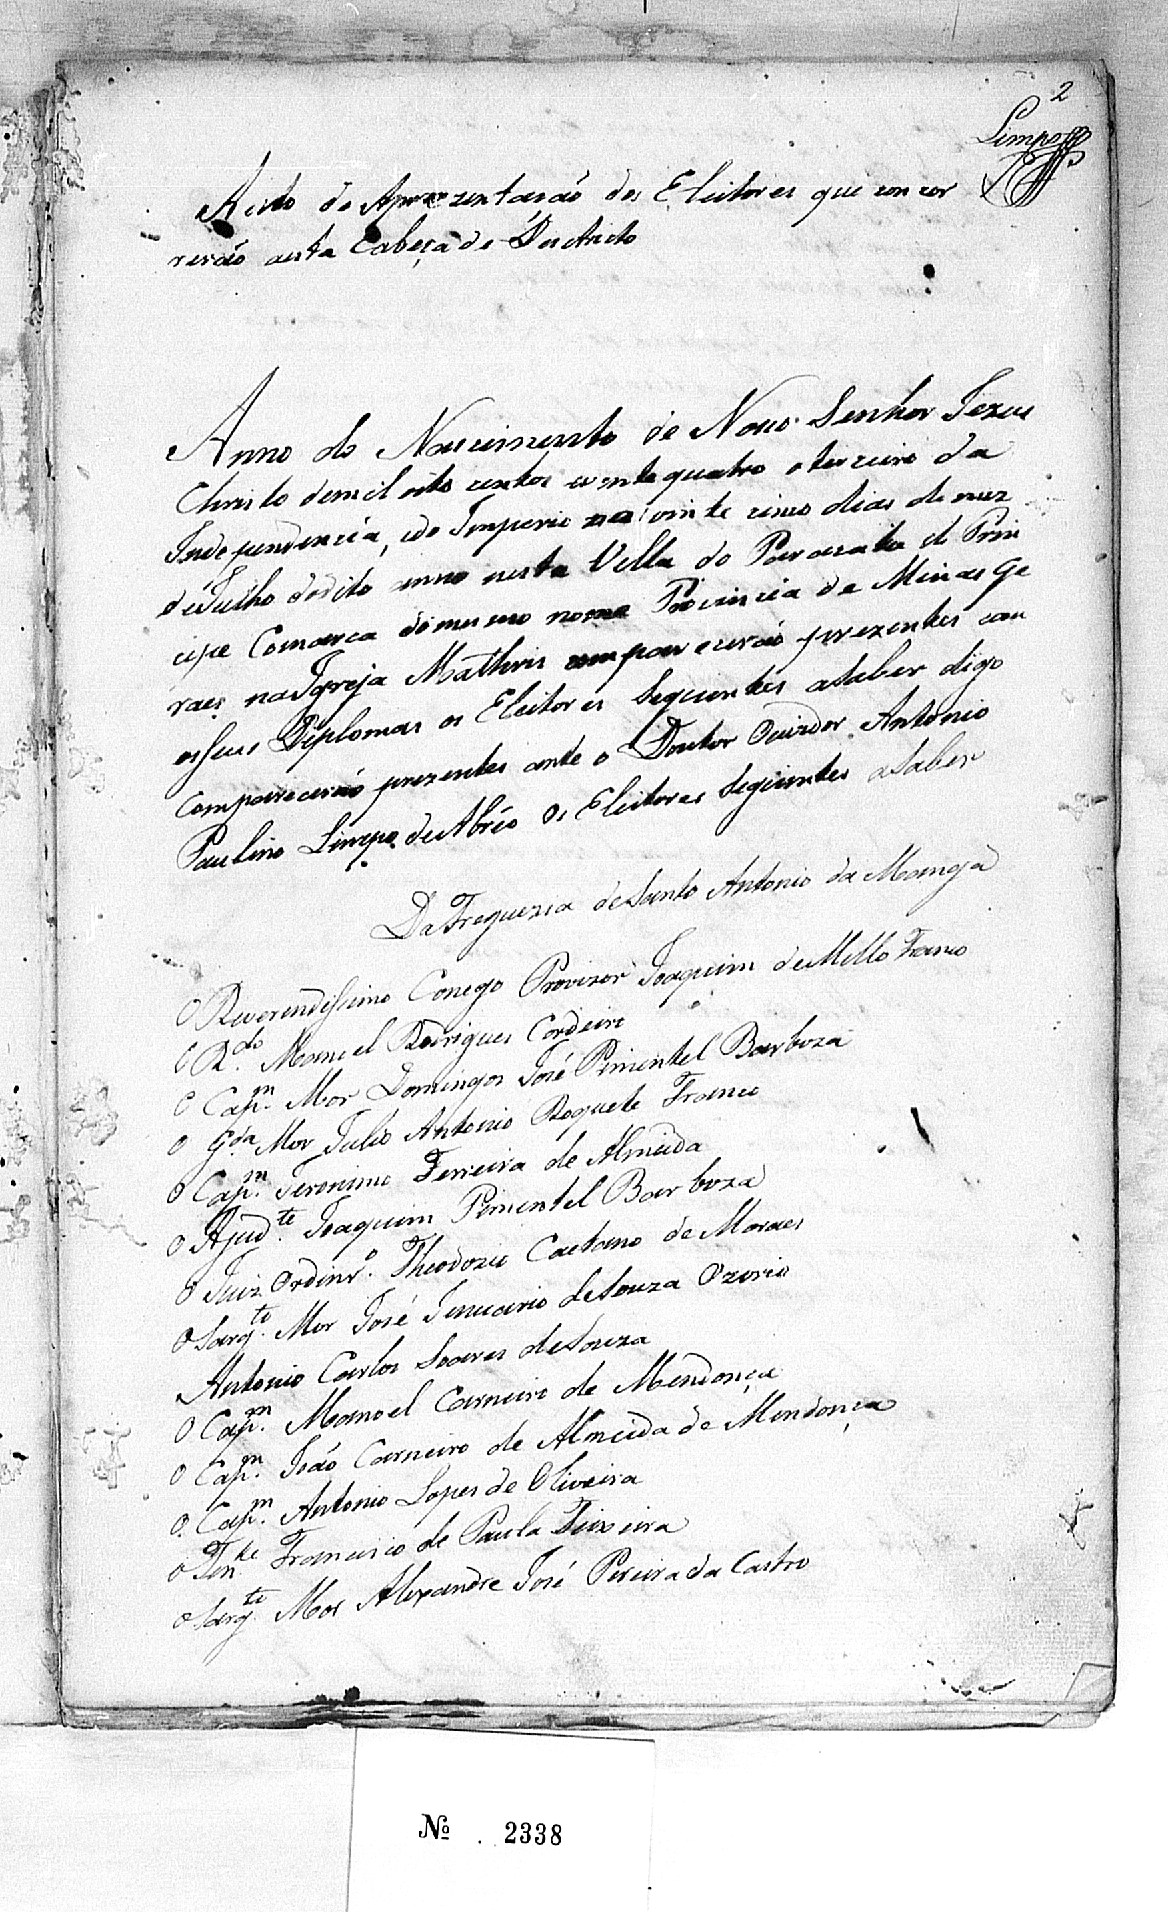 2
Limpo
Auto de Aprezentacaõ dos Eleitores que concor
reraõ nesta Cabeça de Destricto
Anno do Nascimento de Nosso Senhor Jezus
Christo demil oito centos evintequatro eterceiro da
Independencia, edo Imperio nos vinte cinco dias do mez
deJulho dodito anno nesta Villa do Paracatú do Prin
cipe Comarca do mesmo nome Provincia de Minas Ge
raes naIgreja Mathris comparecerão prezentes com
osseus Diplomas os Eleitores seguintes aSaber digo
Comparecerão prezentes ante o Doutor Ouvidor Antonio
Paulino Limpo deAbreo os Eleitores Seguintes aSaber
DaFreguezia deSanto Antonio da Manga
O Reverendissimo Conego Provizor Joaquim deMello Franco
O R.do Manoel Rodrigues Cordeiro
O Cap.m Mor Domingos José Pimentel Barboza
O G.da Mor Julio Antonio Roquete Franco
O Cap.m Jeronimo Ferreira de Almeida
O Ajud.te Joaquim Pimentel Barboza
O Juiz Ordinr.o Theodozio Caetano de Moraes
O Sarg.to Mor José Januario deSouza Ozorio
Antonio Carlos Soares deSouza
O Cap.m Manoel Carneiro de Mendonça
O Cap.m Joáo Carneiro de Almeida de Mendonça
O Cap.m Antonio Lopes de Oliveira
O Ten.te Francisco de Paula Teixeira
O Sarg.to Mor Alexandre José Pereira da Castro
No. 2338